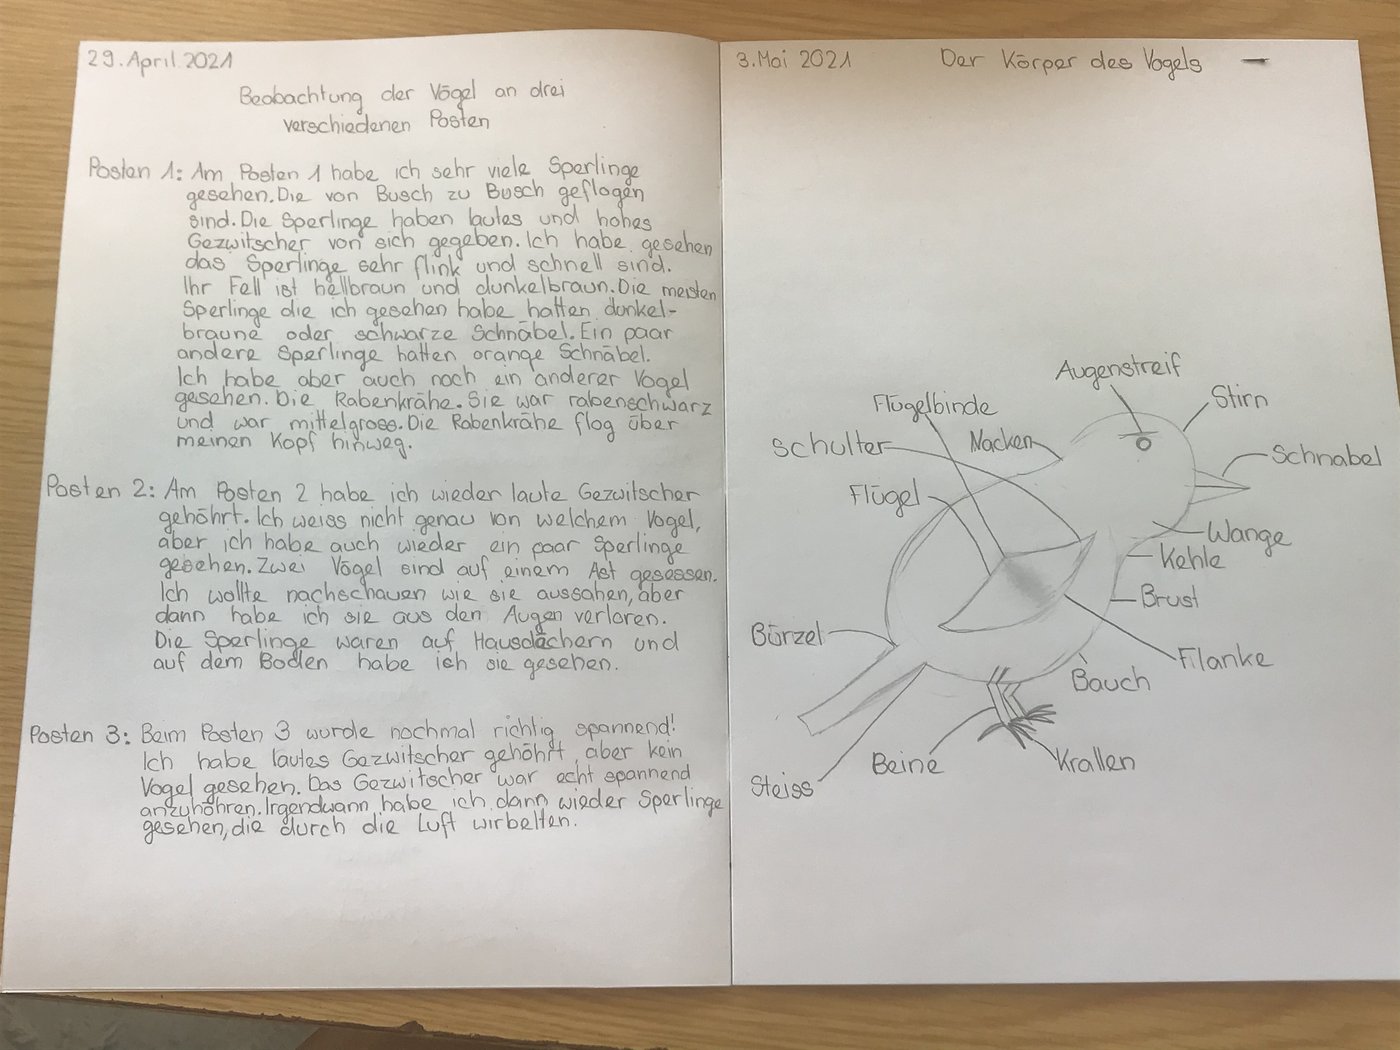 29. April 2021
Beobachtung der Vögel an drei
verschiedenen Posten
Posten 1: Am Posten 1 habe ich sehr viele Sperlinge
gesehen. Die von Busch zu Busch geflogen
sind. Die Sperlinge haben lautes und hohes
Gezwitscher von sich gegeben. Ich habe gesehen
das Sperlinge sehr flink und schnell sind.
Ihr Fell ist hellbraun und dunkelbraun. Die meisten
Sperlinge die ich gesehen habe hatten dunkel-
braune oder schwarze Schnäbel. Ein paar
andere Sperlinge hatten orange Schnäbel.
Ich habe aber auch noch ein anderer Vogel
gesehen. Die Rabenkrähe. Sie war rabenschwarz
und war mittelgross. Die Rabenkrähe flog über
meinen Kopf hinweg.
Posten 2: Am Posten 2 habe ich wieder laute Gezwitscher
gehöhrt. Ich weiss nicht genau von welchem Vogel,
aber ich habe auch wieder ein paar Sperlinge
gesehen. Zwei Vögel sind auf einem Ast gesessen.
Ich wollte nachschauen wie sie aussahen, aber
dann habe ich sie aus den Augen verloren.
Die Sperlinge waren auf Hausdächern und
auf dem Boden habe ich sie gesehen.
Posten 3: Beim Posten 3 wurde nochmal richtig spannend!
Ich habe lautes Gezwitscher gehöhrt, aber kein
Vogel gesehen. Das Gezwitscher war echt spannend
anzuhöhren. Irgendwann habe ich dann wieder Sperlinge
gesehen, die durch die Luft wirbelten.
3. Mai 2021
Der Körper des Vogels
Augenstreif
Flügelbinde
Stirn
Schulter
Nacken
Schnabel
Flügel
Wange
Kehle
Brust
Bürzel
Filanke
Bauch
Beine
Krallen
Steiss